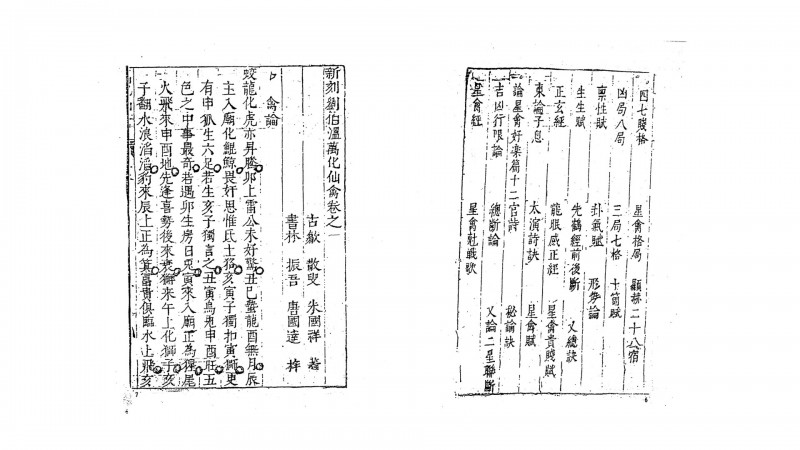 四七賤格 星禽格局 顯赫二十八宿
凶局八局 三局七格 十箇賦
稟性賦 卦氣賦 形勢論
生生賦 先鶴經前後斷 又總訣
正玄經 龍眼感正經 星禽貴賤賦
東論子息 太演詩訣 星禽賦
論星禽好樂篇十二宮詩 秘諭訣
吉凶行限論 總斷論 又論二星聯斷
星禽經 星禽財職歌
6
新刻劉伯溫萬化仙禽卷之一
古歙 散叟 朱國祥 著
書林 振吾 唐國達 梓
禽論
蛟龍化虎亦昇騰卯上雷公未好驚丑巳蟄龍酉無月辰
主入廟化鯤鯨畏奸思惟氐土貉亥寅子獨扣寅獅吏
有申狐生六足若生亥子獨言之丑寅烏兔申酉旺五
色之中事最奇若遇卯生房日兔寅來入廟正為狸尾
火飛來申酉地先逢喜勢後來衰獬來午上化獅子亥
子翻水浪滔滔豹來辰上正為箕富貴俱臨水止飛亥
7